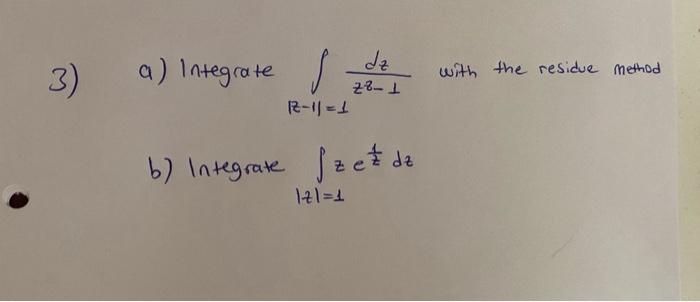 3) a) Integrate ∫ dz / z8-1 with the residue method
|z-1|=1
b) Integrate ∫ z e^1/z dz
|z|=1